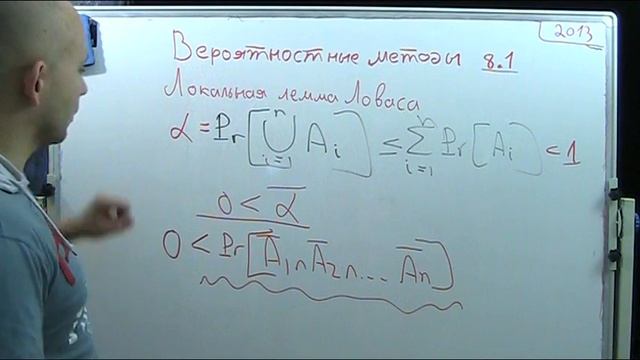 2013
Вероятностные методы 8.1
Локальная лемма Ловаса
α = Pr[⋃ᵢ₌₁ⁿ Aᵢ] ≤ ∑ᵢ₌₁ⁿ Pr[Aᵢ] < 1
0 < α̅
0 < Pr[A̅₁ ∩ A̅₂ ∩ ... A̅ₙ]